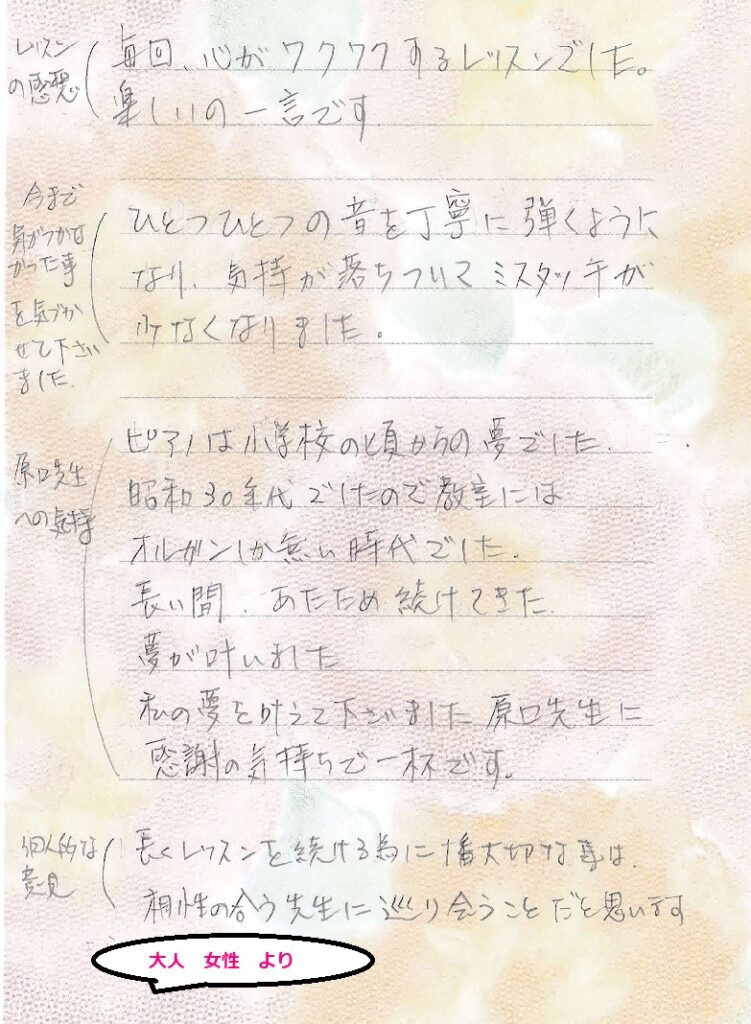 レッスン
の感想
毎回、心がワクワクするレッスンでした。
楽しいの一言です
今まで
気がつかな
かった事
を気づか
せて下さい
ました.
ひとつひとつの音を丁寧に弾くように
なり、気持が落ちついてミスタッチが
少なくなりました。
原口先生
への気持
ピアノは小学校の頃からの夢でした.
昭和30年代でしたので教室には
オルガンしか無い時代でした.
長い間、あたため続けてきた.
夢が叶いました
私の夢を叶えて下さいました原口先生に
感謝の気持ちで一杯です。
個人的な
意見
長くレッスンを続ける為に1番大切な事は、
相性の合う先生に巡り合うことだと思います
大人 女性 より